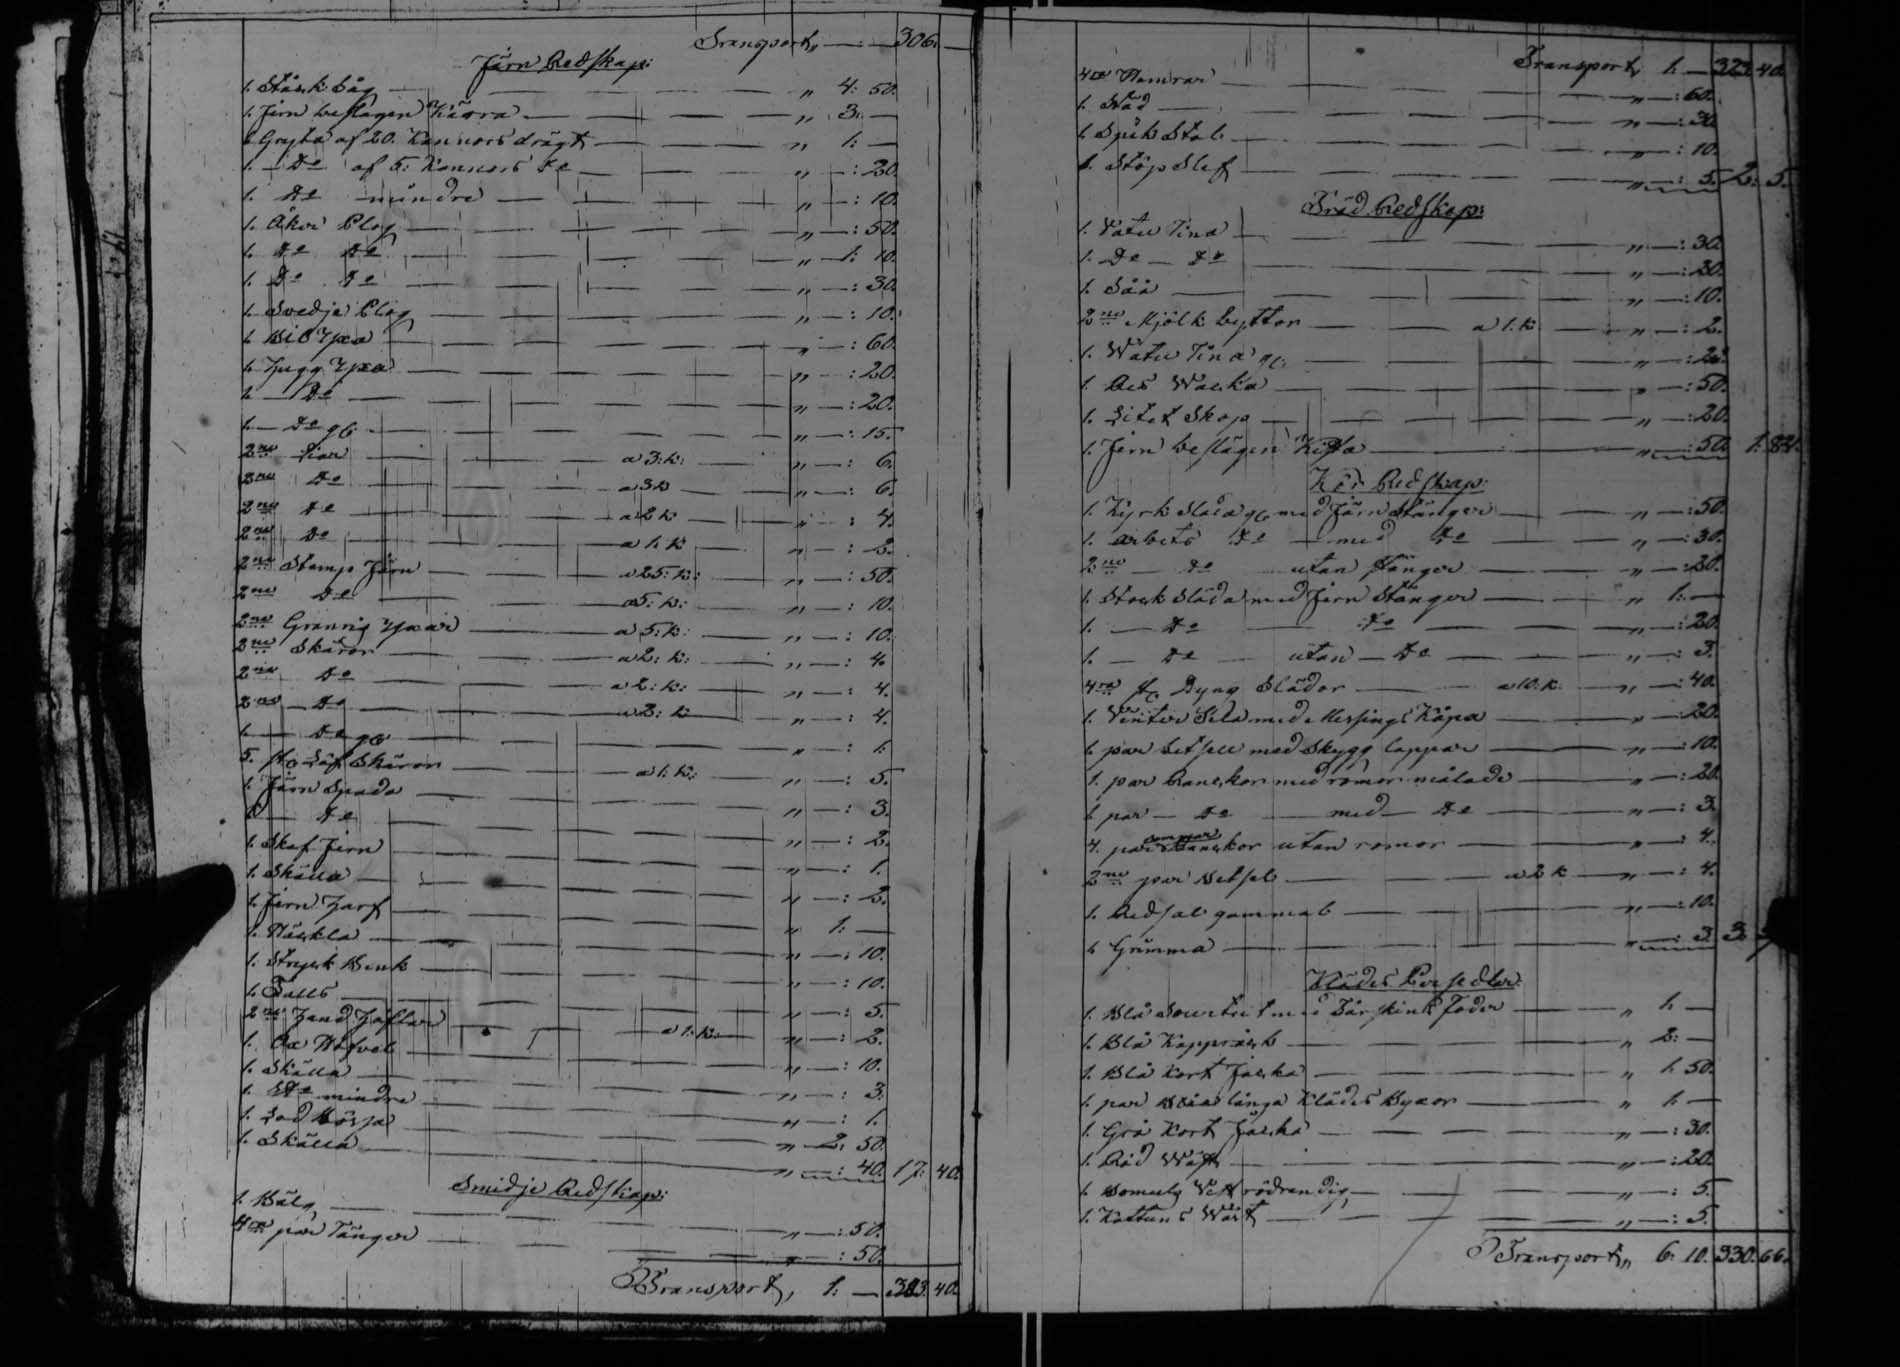 Transport, — 306. —
Järn Redskap:
1. Stock Såg — „ 4: 50.
1. Jern beslagen Kärra — „ 3: —
1 Gryta af 20. Kannors drägt — „ 1: —
1. — Do af 5: Kannors do — „ —: 20.
1. Do mindre — „ —: 10.
1. Åker Plog — „ —: 50.
1. Do Do — „ 1: 10.
1. Do Do — „ —: 30.
1. Svedje Plog — „ —: 10.
1. Bil Yxa — „ —: 60.
1. Hugg Yxa — „ —: 20.
1 — Do — „ —: 20.
1. — Do gl. — „ —: 15.
2ne Liar — a 3: k: — „ —: 6.
2ne Do — a 3 k — „ —: 6.
2ne Do — a 2 k — „ —: 4.
2ne Do — a 1: k — „ —: 2.
2ne Stamp Järn — a 25: k: — „ —: 50.
2ne Do — a 5: k: — „ —: 10.
2ne Granris Yxar — a 5: k: — „ —: 10.
2ne Skäror — a 2: k: — „ —: 4.
2ne Do — a 2: k: — „ —: 4.
2ne — Do — a 2: k — „ —: 4.
1. — Do gl — „ —: 1.
5. st Löf Skäror — a 1: k: — „ —: 5.
1. Järn Spada — „ —: 3.
1 — Do — „ —: 2.
1. Skaf Jern — „ —: 1.
1. Skälla — „ —: 2.
1. Jern Harf — „ 1: —
1. Häckla — „ —: 10.
1. Stryck Bink — „ —: 10.
1. — „ —: 5.
2ne Hand — a 1: k: — „ —: 2.
1. — „ —: 10.
1. Skälla — „ —: 3.
1. Do mindre — „ —: 1.
1. — „ 2: 50.
1. Skälla — „ —: 40. 17: 40.
Smidje Redskap:
1. Bälg — „ —: 50.
4ra par Tänger — „ —: 50.
Transport, 1: — 323. 40.
Transport, 1: — 323. 40.
4ra Hamrar — „ —: 60.
1. Städ — „ —: 30.
1 Spik Stål — „ —: 10.
1. Stöp Slef — „ —: 5. 2: 5.
Träd Redskap:
1. Vatu Tina — „ —: 30.
1. Do — Do — „ —: 20.
1. Såå — „ —: 10.
2ne Mjölk byttor — a 1: k: — „ —: 2.
1. Watu Tina gl: — „ —: 2.
1. Res Wacka — „ —: 50.
1. Litet Skåp — „ —: 20.
1. Jern beslagen Kista — „ —: 50. 1: 84.
Kör Redskap:
1. Kyrk Släda gl med Järn Stänger — „ —: 50.
1. Arbets Do — med Do — „ —: 30.
2ne — Do utan stänger — „ —: 20.
1. Stock Släda med Jern Stänger — „ 1: —
1. — Do — Do — „ —: 20.
1. — Do — utan — Do — „ —: 3.
4ra st Dyng Slädor — a 10. k. — „ —: 40.
1. Vinter Sela med Messings Kåpa — „ —: 20.
1 par Setsel med Skygg lappar — „ —: 10.
1. par Ranckor med romor målade — „ —: 20.
1 par — Do — med — Do — „ —: 3.
4. par Ranckor utan romor — „ —: 4.
2ne par Betsel — a 2 k — „ —: 4.
1. Redsal gammal — „ —: 10.
1. Grimma — „ —: 3. 3:
Klädes Persedlar:
1. Blå Sourtut med Fårskins Foder — „ 1. —
1. Blå Kappråck — „ 2: —
1. Blå Kort Jacka — „ 1. 50.
1. par Blåa långa Klädes Byxor — „ 1. —
1. Grå Kort Jacka — „ —: 30.
1. Röd Wäst — „ —: 20.
1. Bomulz Väst rödrandig — „ —: 5.
1. Kattuns Wäst — „ —: 5.
Transport„ 6: 10. 330. 66.